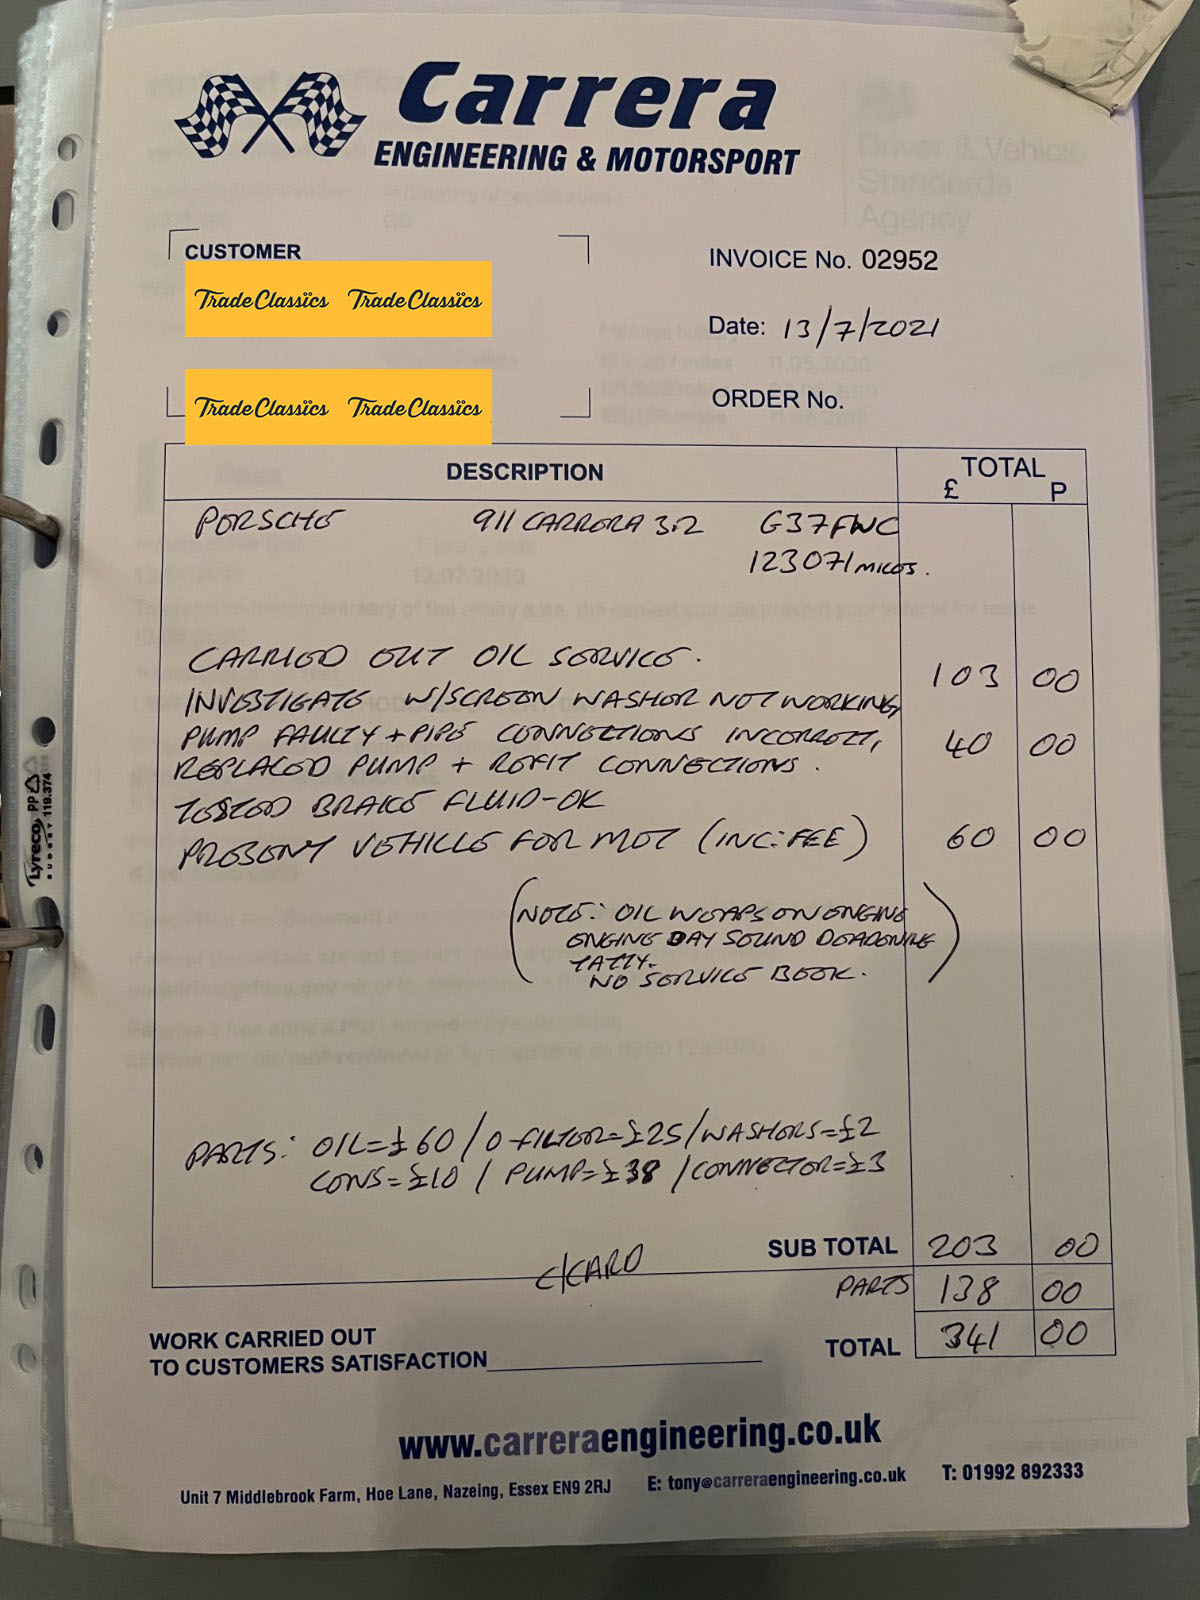 Carrera
ENGINEERING & MOTORSPORT
CUSTOMER
TradeClassics TradeClassics
TradeClassics TradeClassics
INVOICE No. 02952
Date: 13/7/2021
ORDER No.
DESCRIPTION
TOTAL
£ P
PORSCHE 911 CARRERA 3.2 G37FWC
123071 MILES.
CARRIED OUT OIL SERVICE. 103 00
INVESTIGATE W/SCREEN WASHER NOT WORKING,
PUMP FAULTY + PIPE CONNECTIONS INCORRECT, 40 00
REPLACED PUMP + REFIT CONNECTIONS.
TESTED BRAKE FLUID-OK
PRESENT VEHICLE FOR MOT (INC: FEE) 60 00
(NOTE: OIL WEAPS ON ENGINE
ENGINE BAY SOUND DEADENING
TATTY.
NO SERVICE BOOK.)
PARTS: OIL=£60 / O-FILTER=£25 / WASHERS=£2
CONS=£10 / PUMP=£38 / CONNECTOR=£3
SUB TOTAL 203 00
C/CARD
PARTS 138 00
TOTAL 341 00
WORK CARRIED OUT
TO CUSTOMERS SATISFACTION
www.carreraengineering.co.uk
Unit 7 Middlebrook Farm, Hoe Lane, Nazeing, Essex EN9 2RJ E: tony@carreraengineering.co.uk T: 01992 892333
Lyreco PP
BUDGET 119.374
Driver & Vehicle
Standards
Agency